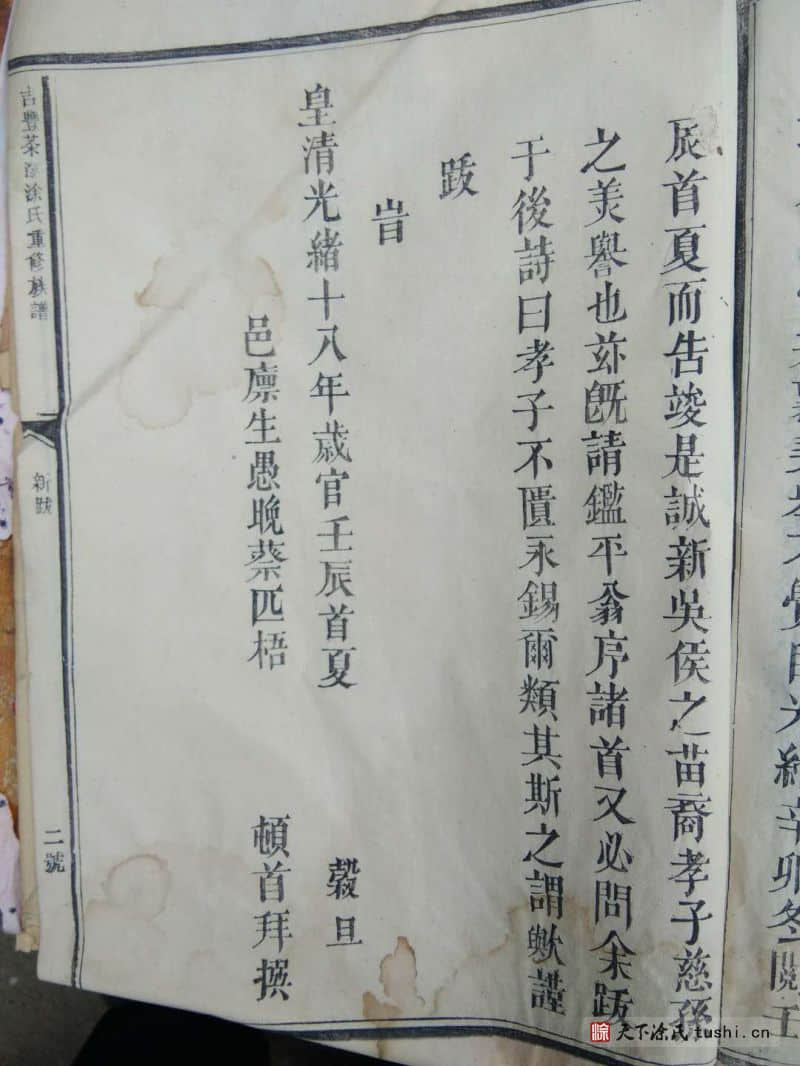 光緒辛卯冬閱壬
辰首夏而告竣是誠新吳侯之苗裔孝子慈孫
之美譽也茲既請鑑平翁序諸首又必問余跋
于後詩曰孝子不匱永錫爾類其斯之謂歟謹
跋
旹
皇清光緒十八年歲官壬辰首夏 穀旦
邑廩生愚晚蔡匹梧 頓首拜撰
新跋
二號
天下涂氏 tushi.cn